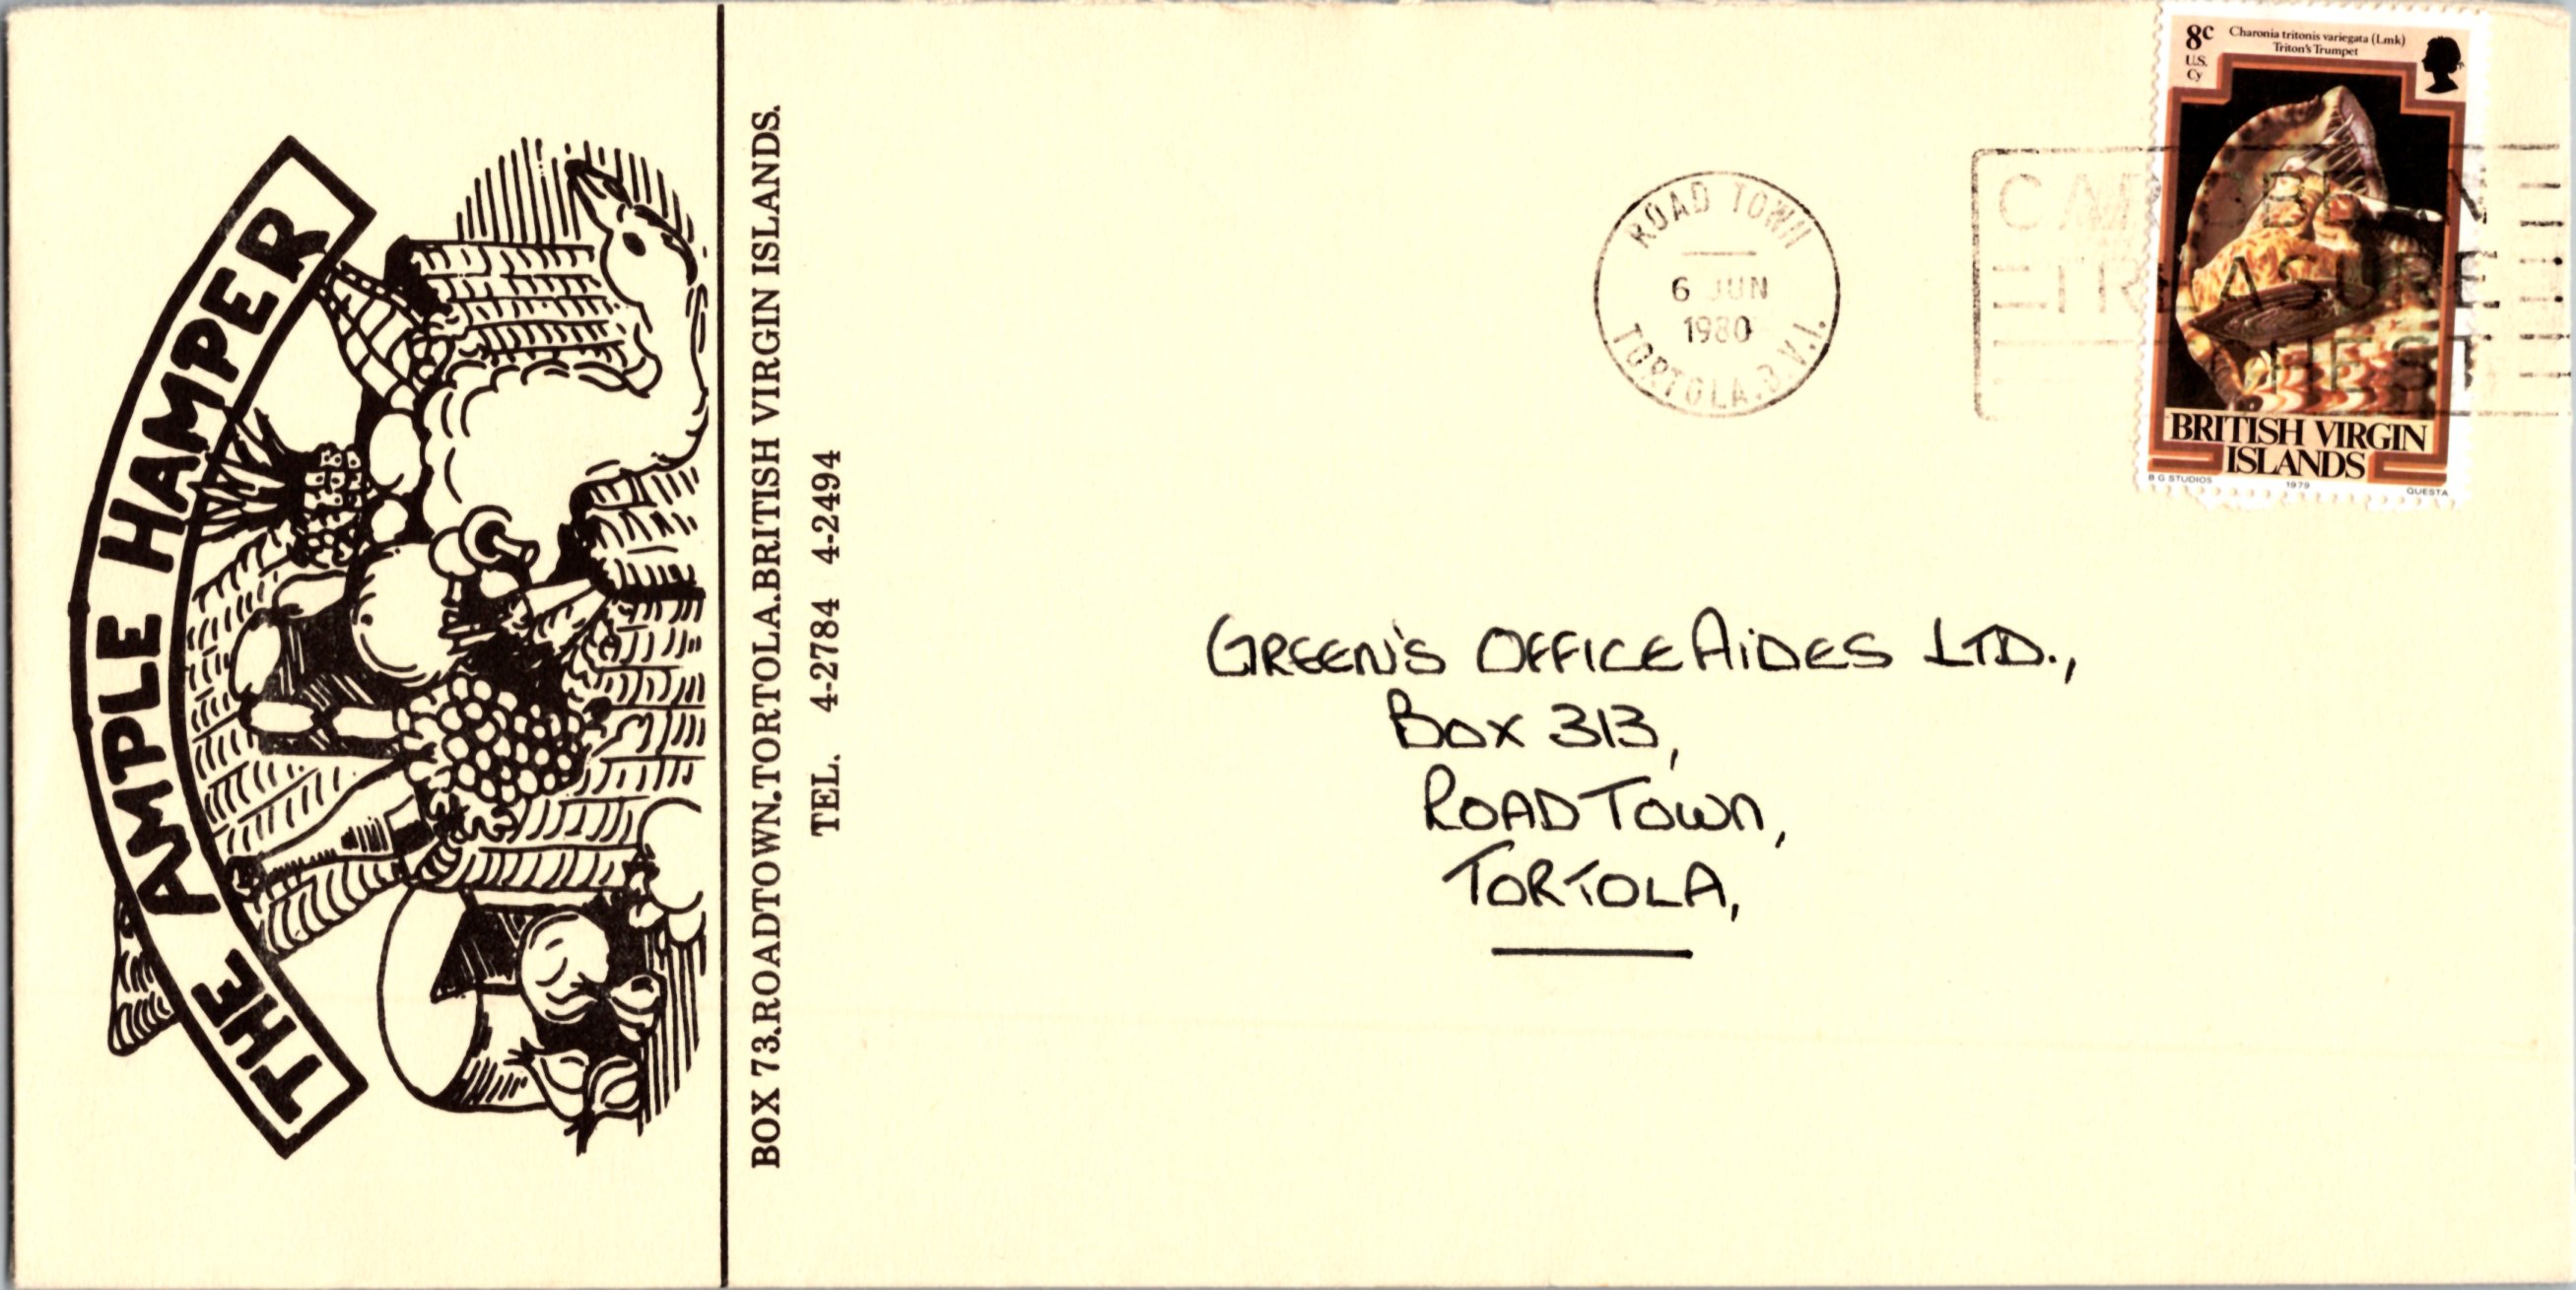 THE AMPLE HAMPER
BOX 73.ROADTOWN.TORTOLA.BRITISH VIRGIN ISLANDS.
TEL. 4-2784 4-2494
ROAD TOWN
6 JUN
1980
TORTOLA.B.V.I.
CARIBBEAN
TREASURE
CHEST
8c
U.S.
Cy
Charonia tritonis variegata (Lmk)
Triton's Trumpet
BRITISH VIRGIN
ISLANDS
B G STUDIOS 1979 QUESTA
GREEN'S OFFICE AIDES LTD.,
BOX 313,
ROAD TOWN,
TORTOLA,